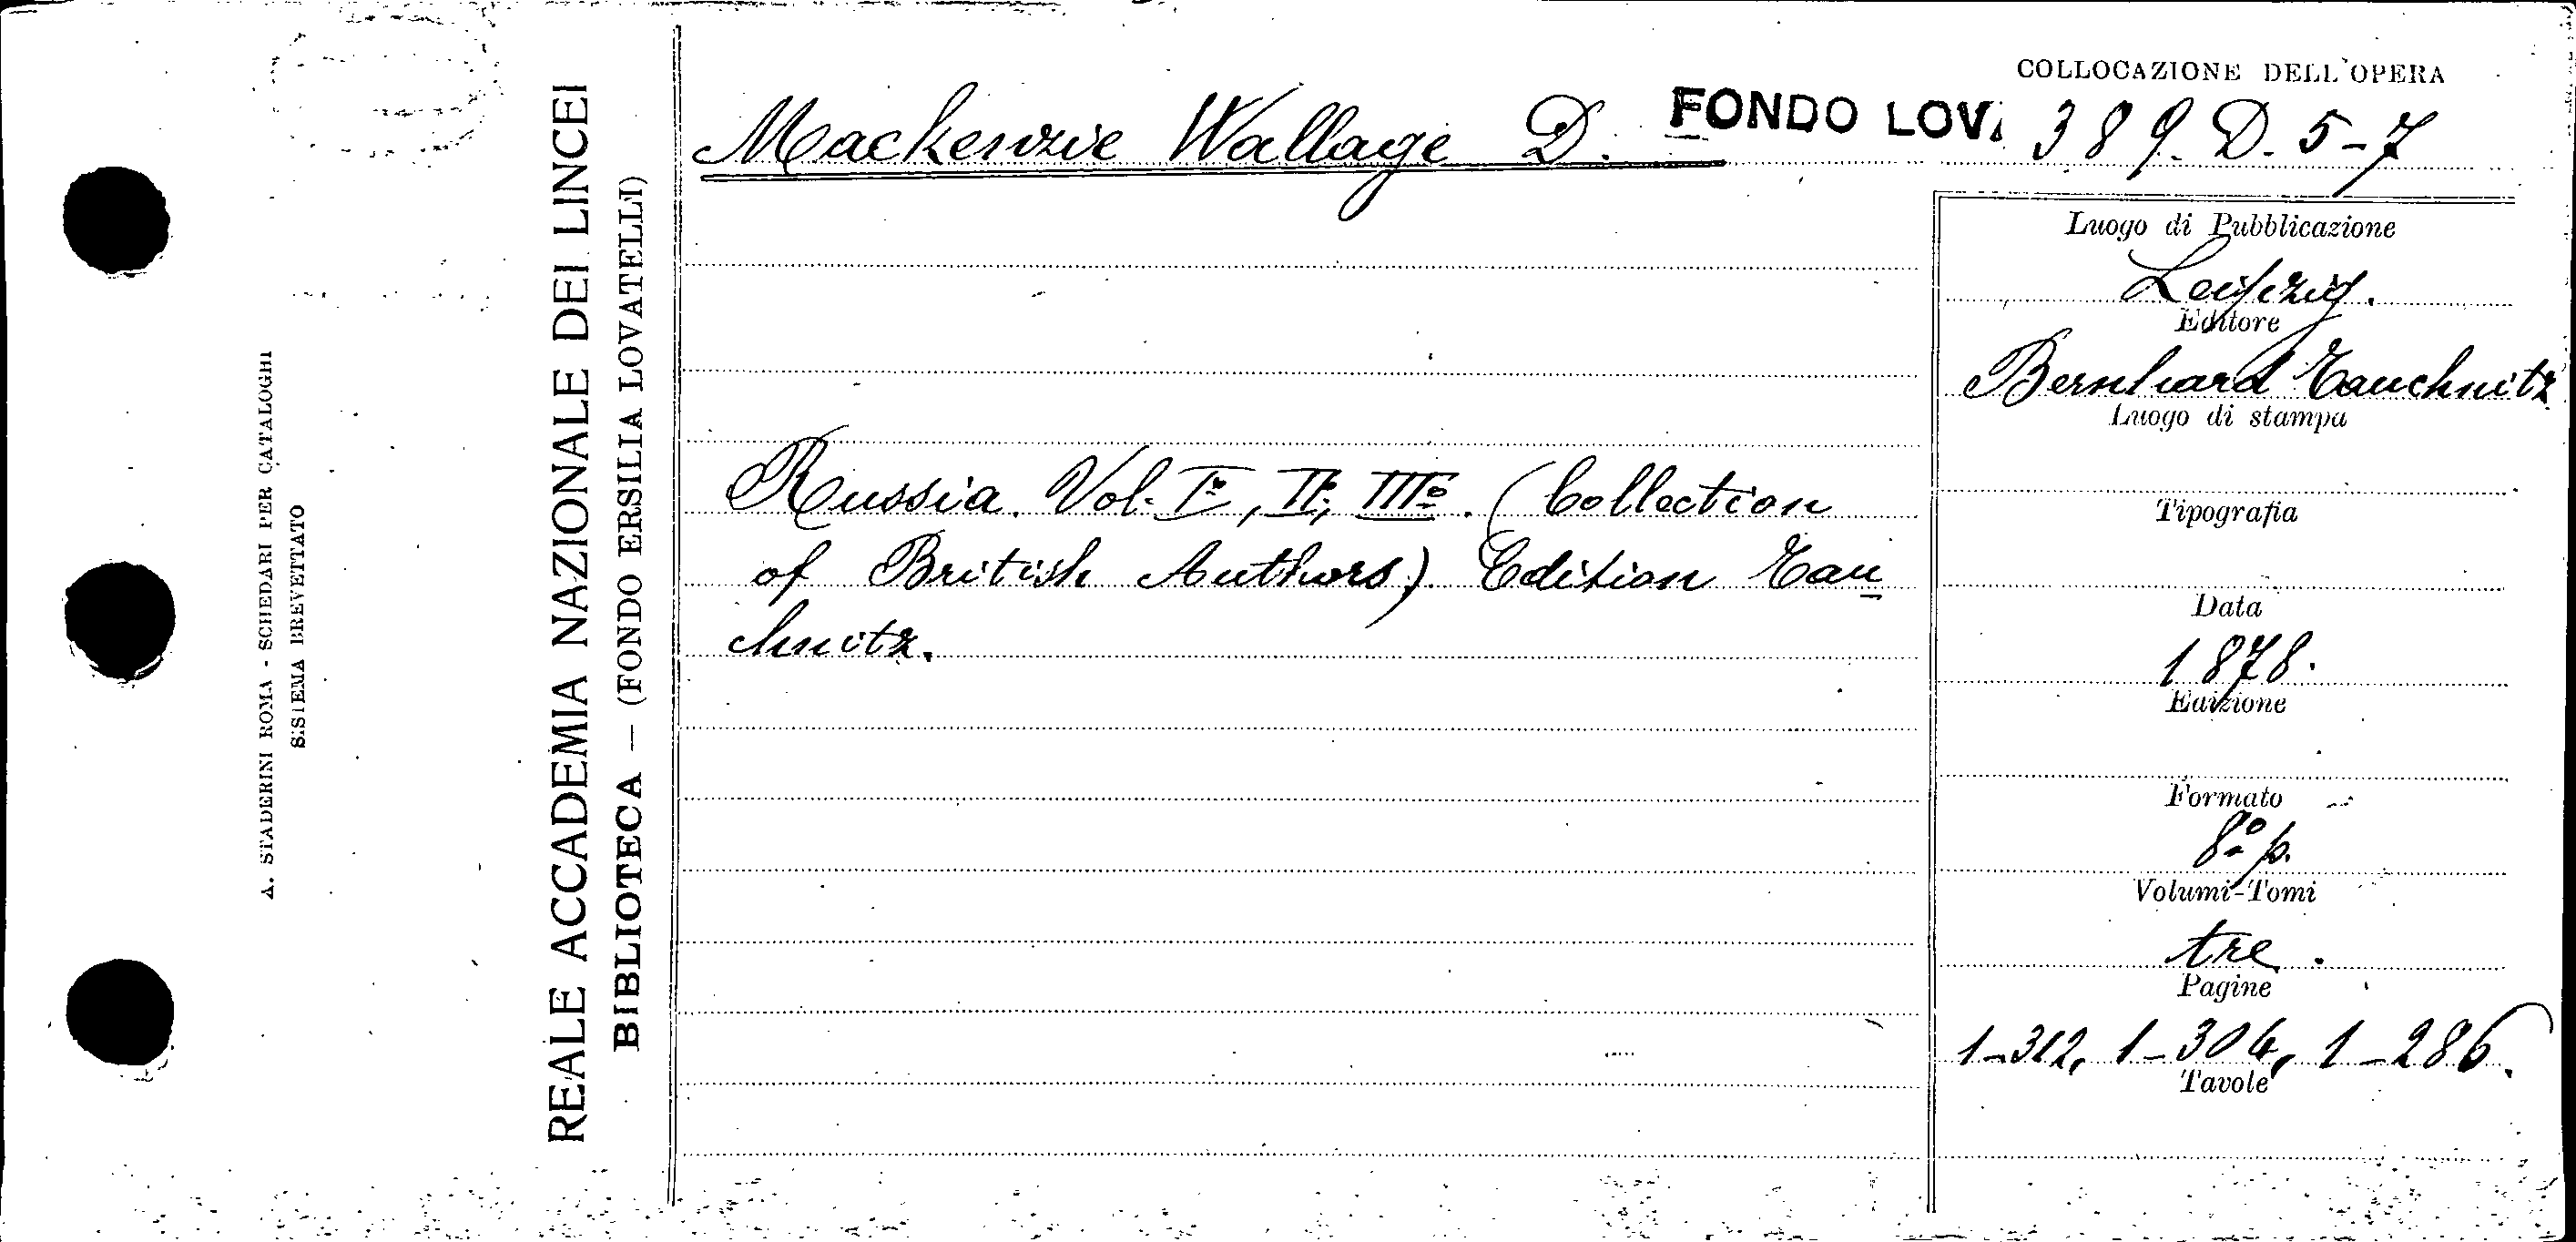 A. STADERINI ROMA - SCHEDARI PER CATALOGHI
SISTEMA BREVETTATO
REALE ACCADEMIA NAZIONALE DEI LINCEI
BIBLIOTECA — (FONDO ERSILIA LOVATELLI)
COLLOCAZIONE DELL'OPERA
Mackenzie Wallage D. FONDO LOV. 389. D. 5-7
Russia. Vol. Iº, IIº, IIIº. (Collection
of British Authors). Edition Tau
chnitz.
Luogo di Pubblicazione
Leipzig.
Editore
Bernhard Tauchnitz
Luogo di stampa
Tipografia
Data
1878.
Edizione
Formato
8º p.
Volumi-Tomi
tre.
Pagine
1-312, 1-304, 1-286.
Tavole